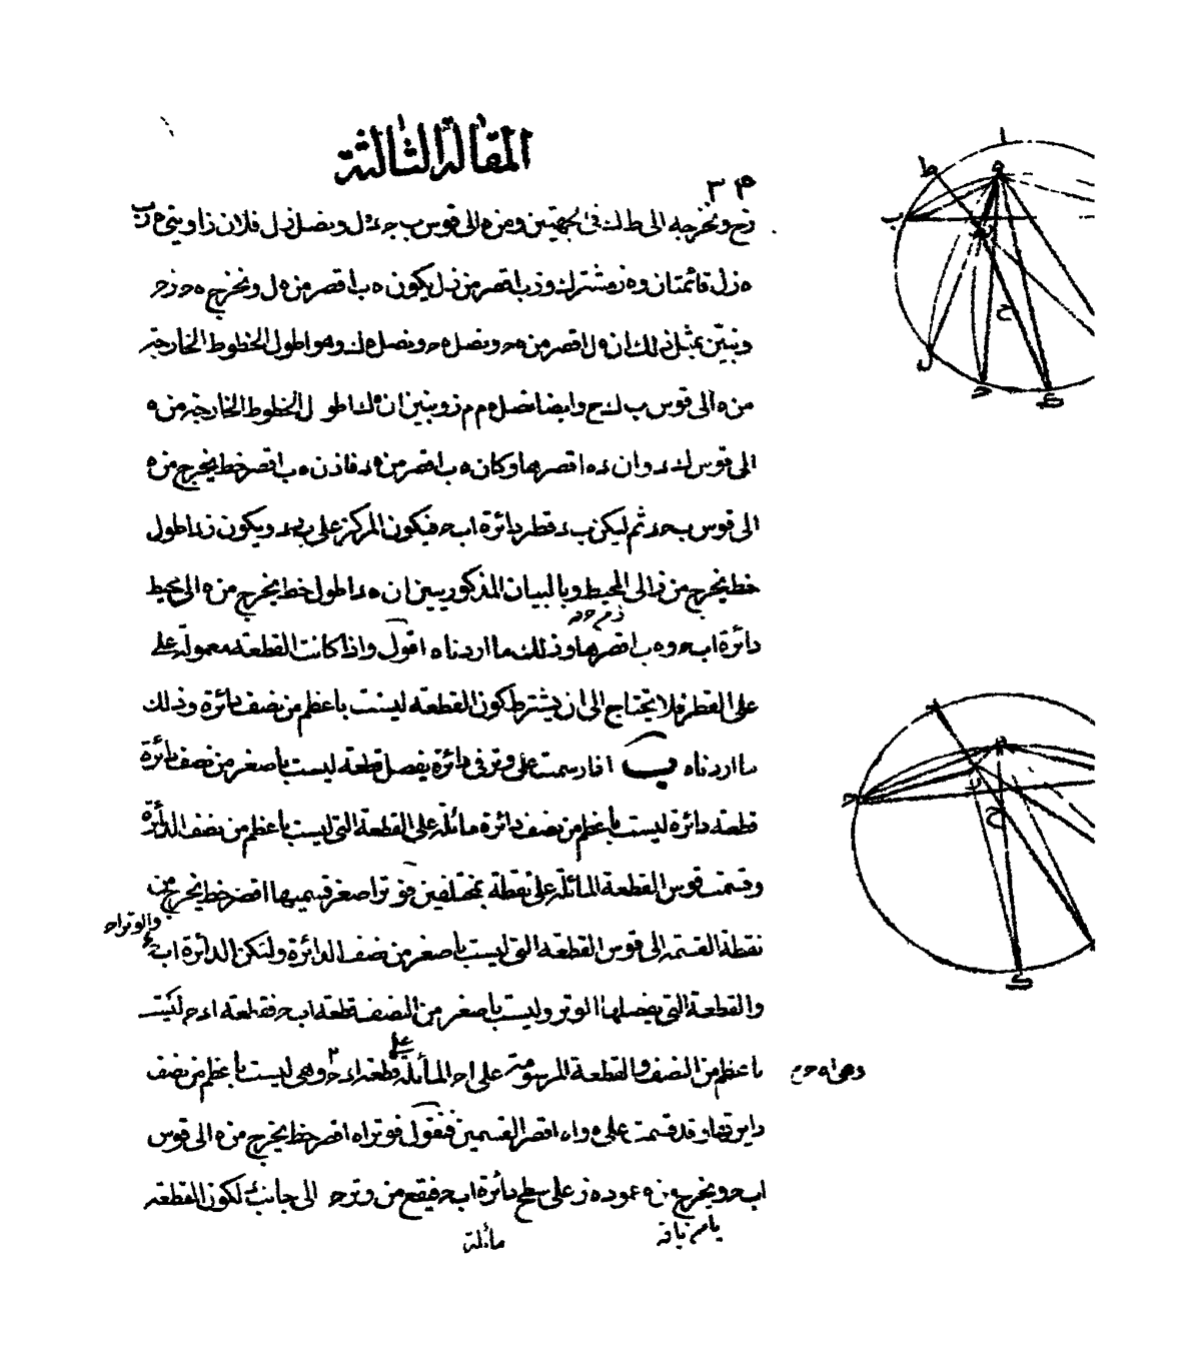 المقالة الثالثة
٣٤
زح ونخرجه الى ط ك فى الجهتين ومن ه الى قوس ب ج د ه ل ونصل ز ل فلان زاويتى ه ز ب
ه ز ل قائمتان و ه ز مشترك و ز ب اقصر من ز ل يكون ه ب اقصر من ه ل ونخرج ه ح ز ح
ونبين بمثل ذلك ان ه ل اقصر من ه ح ونصل ه ح ونصل ه ك وهو اطول الخطوط الخارجة
من ه الى قوس ب ك ح وايضا نصل ه م م ز ونبين ان ه ك اطول الخطوط الخارجة من ه
الى قوس ك د وان د ه اقصرها وكان ه ب اقصر من ه د فاذن ه ب اقصر خط يخرج من ه
الى قوس ب ح د ثم ليكن ب د قطر دائرة ا ب ح فيكون المركز على ب د ويكون ز د اطول
خط يخرج من ز الى المحيط وبالبيان المذكور يبين ان ه د اطول خط يخرج من ه الى محيط
دائرة ا ب ح و ه ب اقصرها وذلك ما اردناه اقول واذا كانت القطعة معمولة على
على القطر فلا يحتاج الى ان يشترط كون القطعة ليست باعظم من نصف دائرة وذلك
ما اردناه ب اذا رسمت على وتر فى دائرة يفصل قطعة ليست باصغر من نصف دائرة
قطعة دائرة ليست باعظم من نصف دائرة مائلة على القطعة التى ليست باعظم من نصف الدائرة
وقسمت قوس القطعة المائلة على نقطة بمختلفين فوتر اصغر قسميها اقصر خط يخرج من
نقطة القسمة الى قوس القطعة التى ليست باصغر من نصف الدائرة ولتكن الدائرة ا ب ح د
والوتر ا ح
والقطعة التى يفصلها الوتر وليست باصغر من النصف قطعة ا ب ح فقطعة ا د ح ليست
باعظم من النصف والقطعة المرسومة على ا ح المائلة على قطعة ا د ح وهى ليست باعظم من نصف
وهى ا ه ح
دايرتها وقد قسمت على ه و ا ه اقصر القسمين فنقول فوتر ا ه اقصر خط يخرج من ه الى قوس
ا ب ح ونخرج من ه عمود ه ز على سطح دائرة ا ب ح فيقع من وتر ح الى جانب لكون القطعة
مائلة